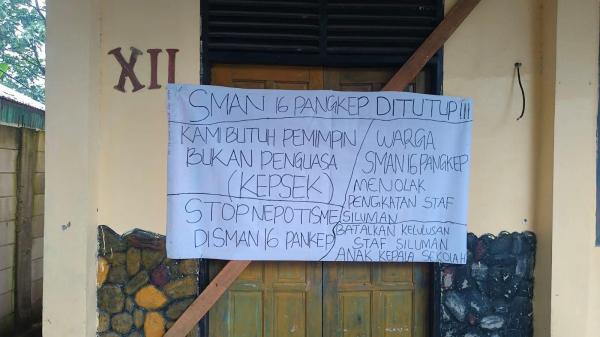 XII
SMAN 16 PANGKEP DITUTUP!!!
KAMI BUTUH PEMIMPIN
BUKAN PENGUASA
(KEPSEK)
STOP NEPOTISME
DISMAN 16 PANKEP
WARGA
SMAN 16 PANGKEP
MENOLAK
PENGKATAN STAF
SILUMAN
BATALKAN KELULUSAN
STAF SILUMAN
ANAK KEPALA SEKOLAH